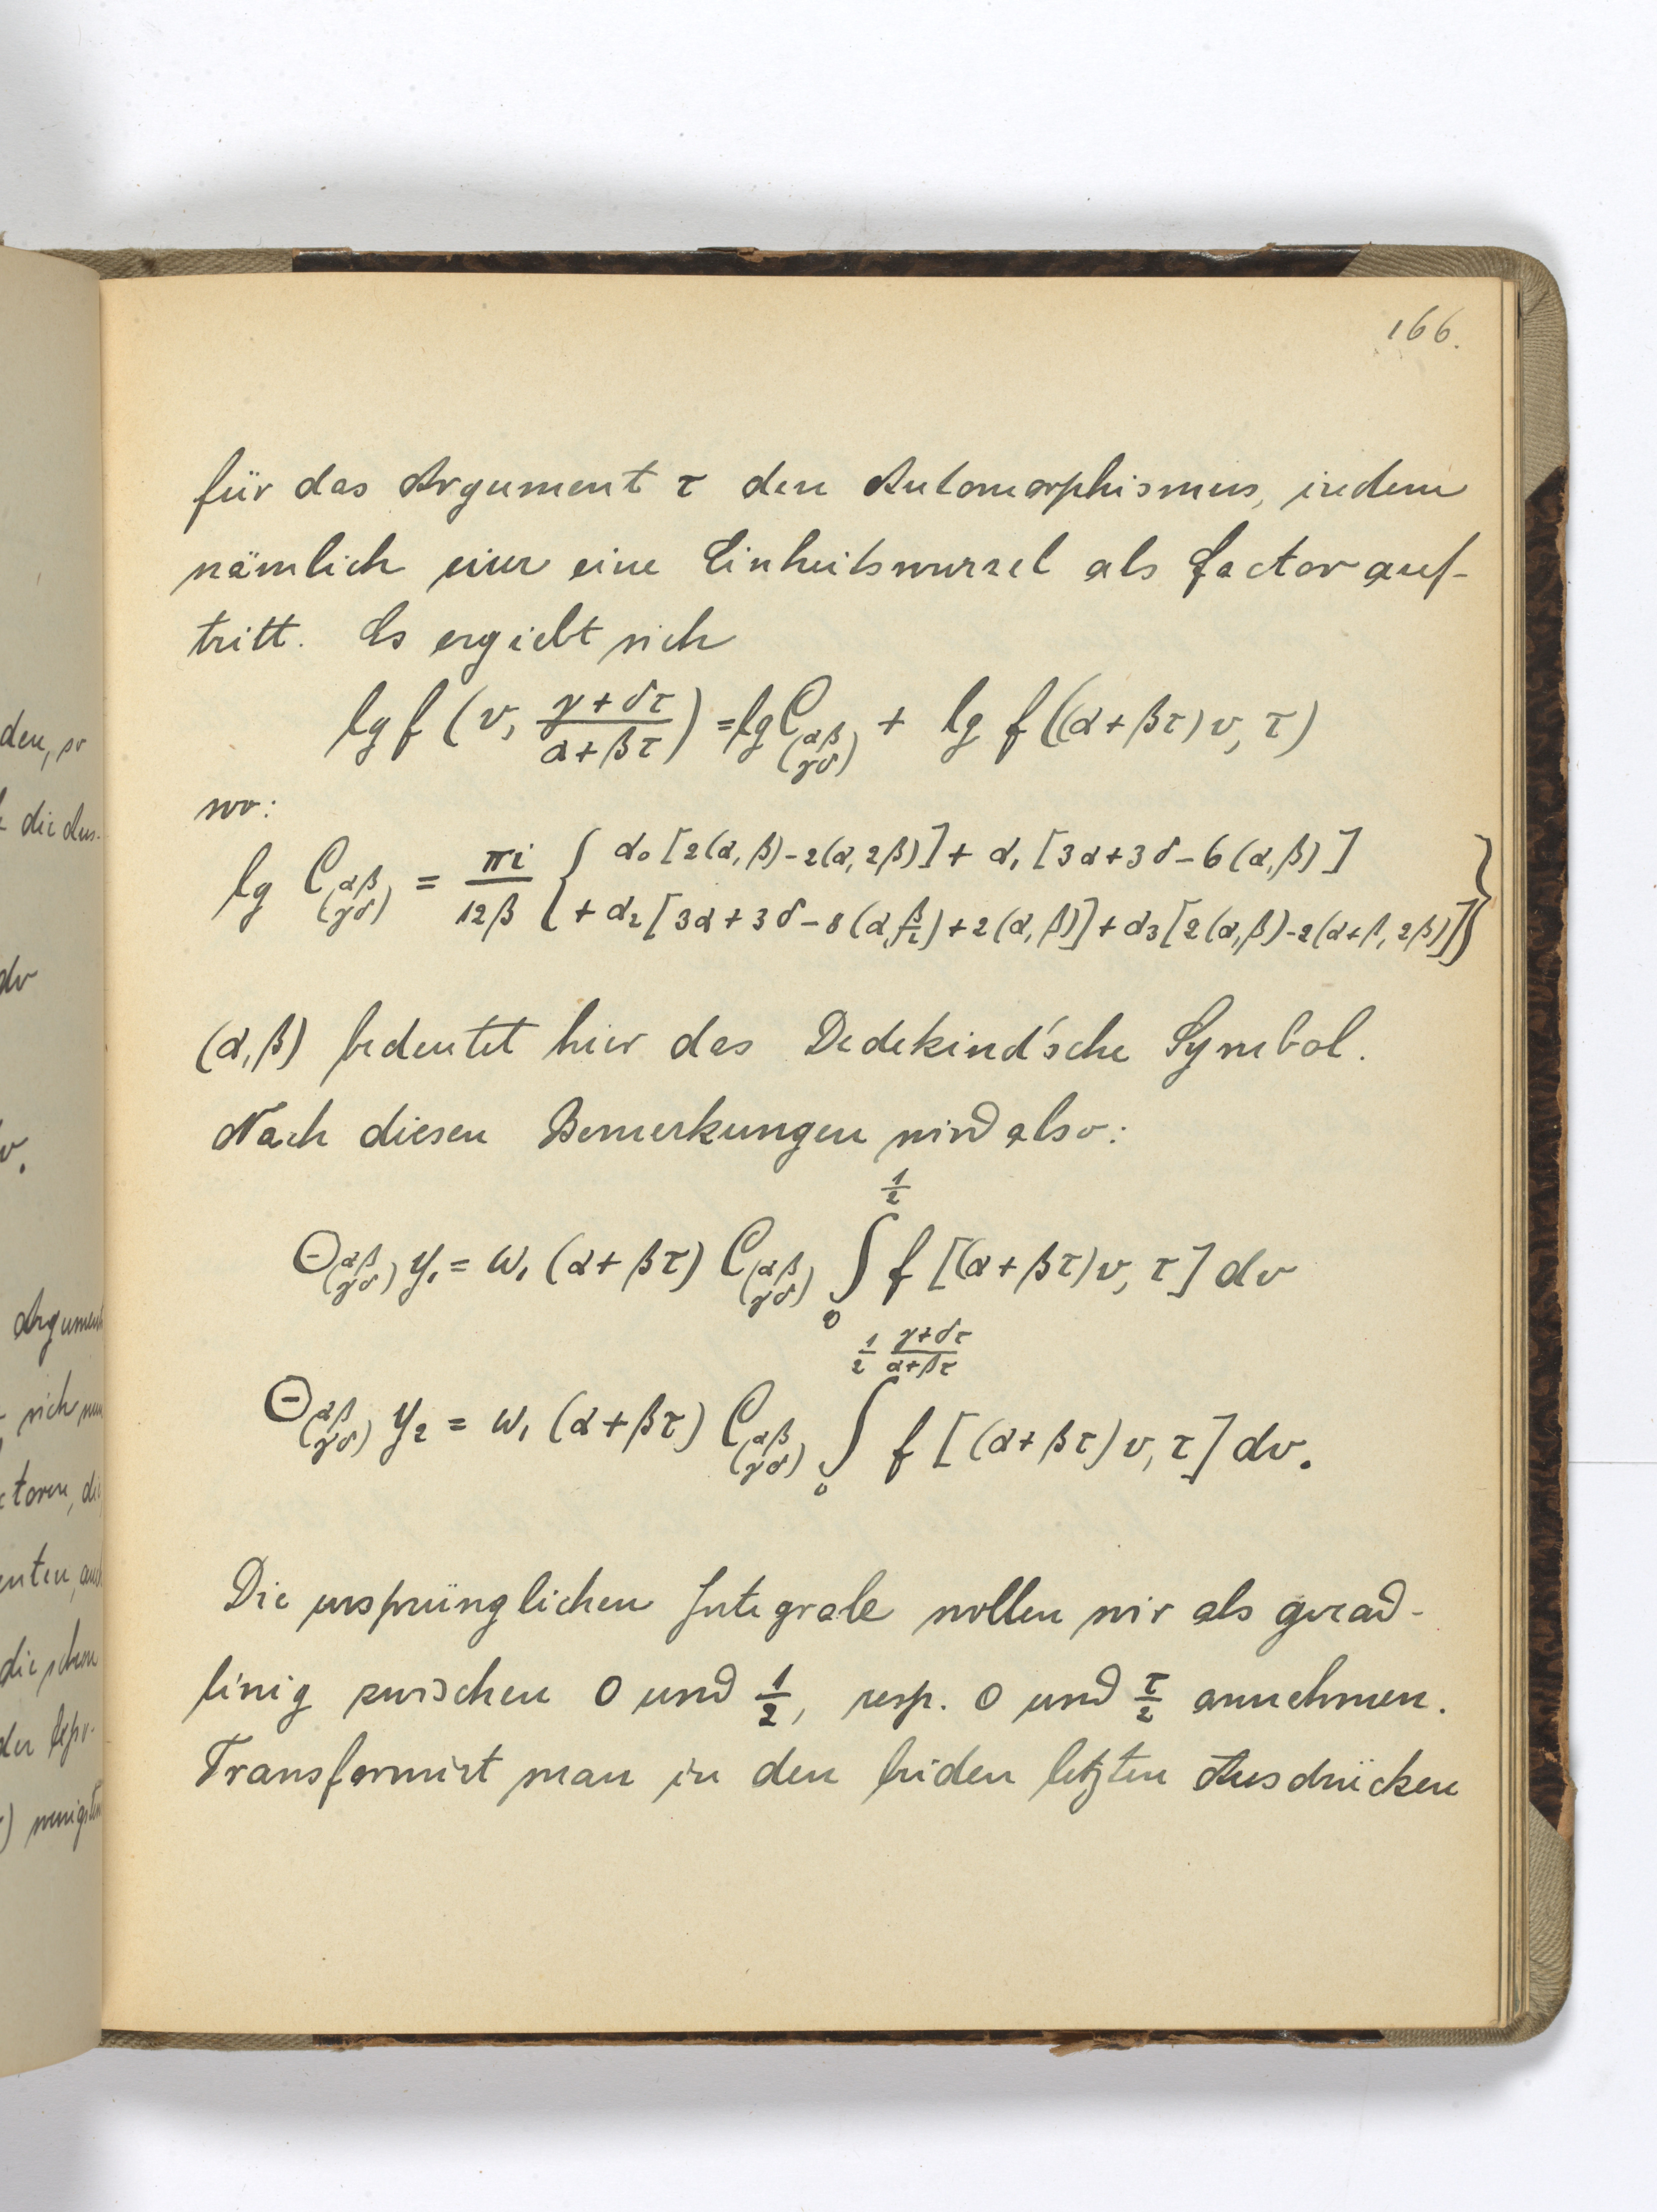 166.
für das Argument τ den Automorphismus, indem
nämlich nur eine Einheitswurzel als Factor auf-
tritt. Es ergiebt sich
lg f (v, (γ+δτ)/(α+βτ)) = lg C(αβ γδ) + lg f((α+βτ)v, τ)
wo:
lg C(αβ γδ) = πi/12β { α₀[2(α,β)-2(α,2β)] + α₁[3α+3δ-6(α,β)]
+ α₂[3α+3δ-8(α,β/2)+2(α,β)] + α₃[2(α,β)-2(α+β,2β)] }
(α,β) bedeutet hier das Dedekind'sche Symbol.
Nach diesen Bemerkungen wird also:
Θ(αβ γδ) y₁ = ω₁ (α+βτ) C(αβ γδ) ∫₀^{1/2} f [(α+βτ)v, τ] dv
Θ(αβ γδ) y₂ = ω₁ (α+βτ) C(αβ γδ) ∫₀^{1/2 (γ+δτ)/(α+βτ)} f [(α+βτ)v, τ] dv.
Die ursprünglichen Integrale wollen wir als gerad-
linig zwischen 0 und 1/2, resp. 0 und τ/2 annehmen.
Transformirt man in den beiden letzten Ausdrücken
den, so
die Aus-
dv
v.
Argument
sich nun
die schon
der